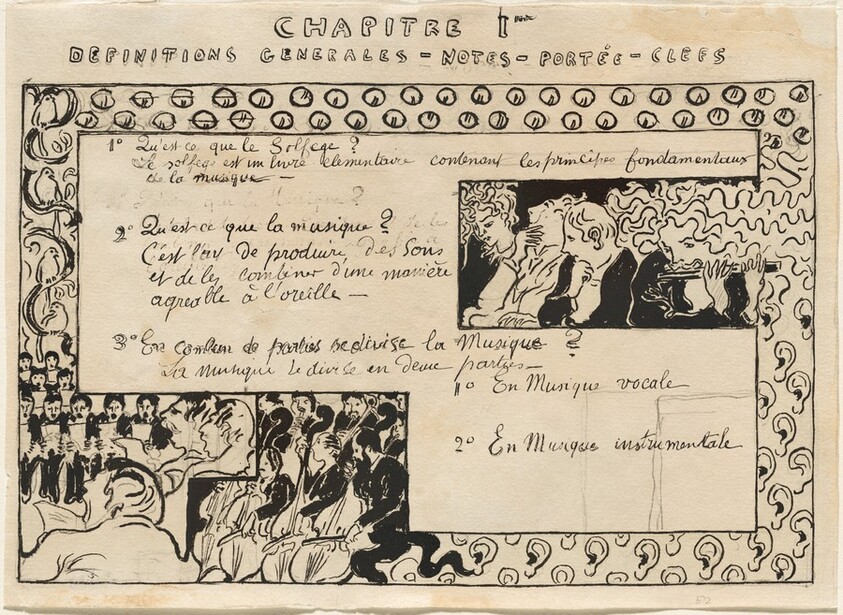 CHAPITRE Ier
DEFINITIONS GENERALES - NOTES - PORTÉE - CLEFS
1° Qu'est ce que le Solfege ?
Le solfege est un livre elementaire contenant les principes fondamentaux
de la musique —
2° Qu'est ce que la musique ?
C'est l'art de produire des Sons
et de les combiner d'une manière
agreable à l'oreille —
3° En combien de parties se divise la Musique ?
La musique se divise en deux parties —
1° En Musique vocale
2° En Musique instrumentale